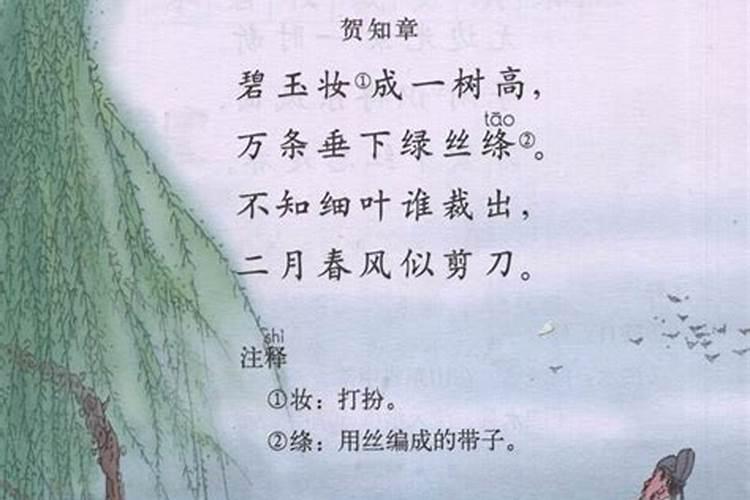 贺知章
碧玉妆①成一树高，
tāo
万条垂下绿丝绦②。
不知细叶谁裁出，
二月春风似剪刀。
shì
注释
①妆：打扮。
②绦：用丝编成的带子。